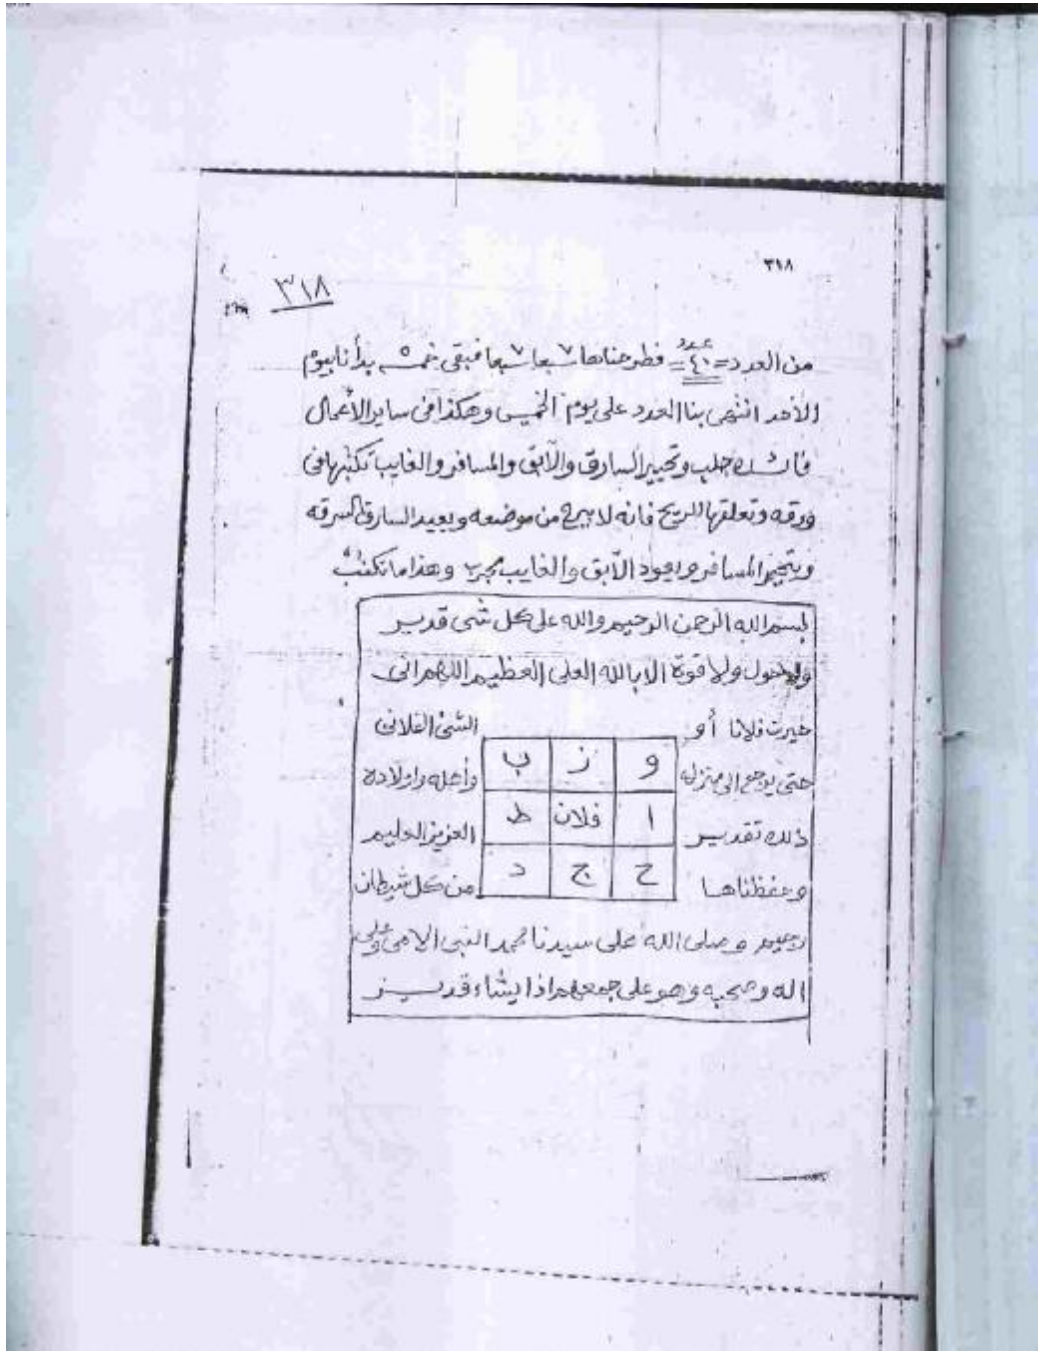 ٣١٨
٣١٨
من العدد = عدد ٤٠ = فطرحناها ٧ سبعا ٧ سبعا فبقى خمسه ٥ بدأنا بيوم
الأحد انتهى بنا العدد على يوم الخميس وهكذا فى ساير الأعمال
جلب وتحيير السارق والآبق والمسافر والغايب تكتبها فى
ورقه وتعلقها للريح فانه لا يبرح من موضعه ويعيد السارق السرقه
ويتحير المسافر ويعود الآبق والغايب مجرب وهذا ما تكتب
بسم الله الرحمن الرحيم والله على كل شى قدير
ولا حول ولا قوة الا بالله العلى العظيم اللهم انى
حيرت فلانا أو الشئ الفلانى
و ز ب
حتى يرجع الى منزله وأهله واولاده
ا فلان ط
ذلك تقدير العزيز العليم
ح ج د
وحفظناها من كل شيطان
رجيم وصلى الله على سيدنا محمد النبى الامى وعلى
اله وصحبه وهو على جمعهم اذا يشاء قدير